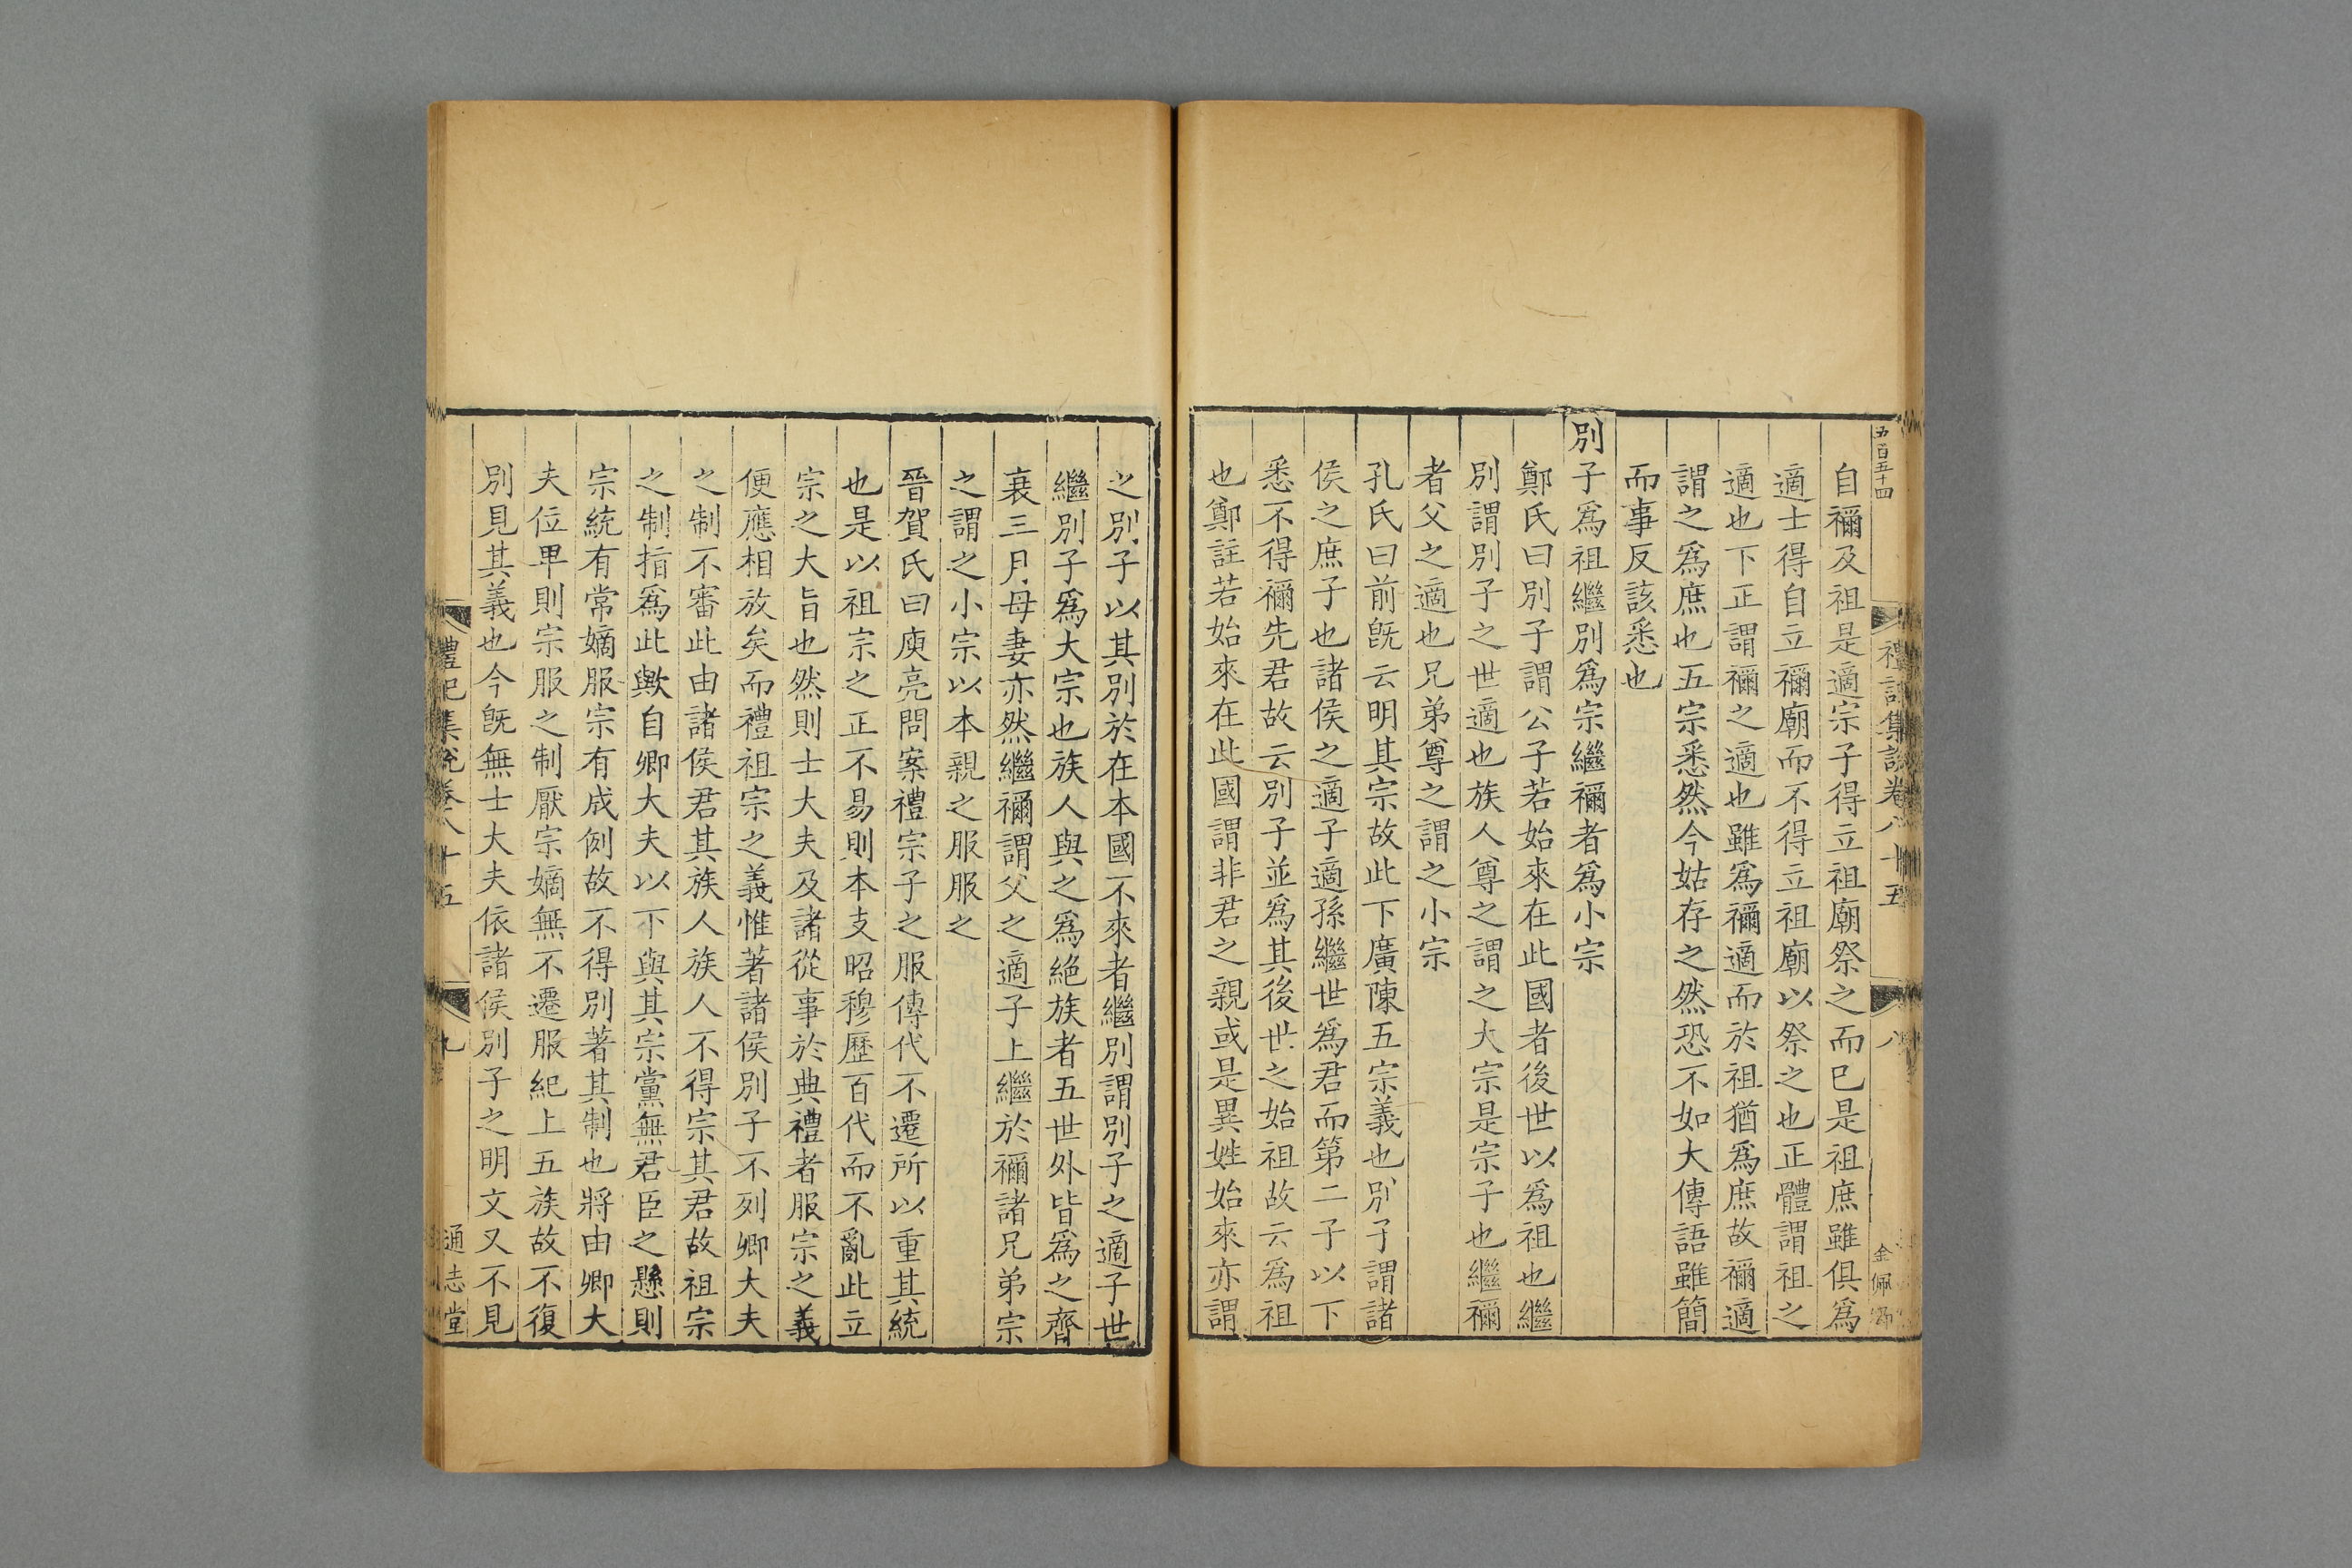 五百五十四
禮記集說卷八十五
八
金佩
自禰及祖是適宗子得立祖廟祭之而已是祖庶雖俱爲
適士得自立禰廟而不得立祖廟以祭之也正體謂祖之
適也下正謂禰之適也雖爲禰適而於祖猶爲庶故禰適
謂之爲庶也五宗悉然今姑存之然恐不如大傳語雖簡
而事反該悉也
別子爲祖繼別爲宗繼禰者爲小宗
鄭氏曰別子謂公子若始來在此國者後世以爲祖也繼
別謂別子之世適也族人尊之謂之大宗是宗子也繼禰
者父之適也兄弟尊之謂之小宗
孔氏曰前旣云明其宗故此下廣陳五宗義也別子謂諸
侯之庶子也諸侯之適子適孫繼世爲君而第二子以下
悉不得禰先君故云別子並爲其後世之始祖故云爲祖
也鄭註若始來在此國謂非君之親或是異姓始來亦謂
之別子以其別於在本國不來者繼別謂別子之適子世
繼別子爲大宗也族人與之爲絕族者五世外皆爲之齊
衰三月母妻亦然繼禰謂父之適子上繼於禰諸兄弟宗
之謂之小宗以本親之服服之
晉賀氏曰庾亮問案禮宗子之服傳代不遷所以重其統
也是以祖宗之正不易則本支昭穆歷百代而不亂此立
宗之大旨也然則士大夫及諸從事於典禮者服宗之義
便應相放矣而禮祖宗之義惟著諸侯別子不列卿大夫
之制不審此由諸侯君其族人族人不得宗其君故祖宗
之制指爲此歟自卿大夫以下與其宗黨無君臣之懸則
宗統有常嫡服宗有成例故不得別著其制也將由卿大
夫位卑則宗服之制厭宗嫡無不遷服紀上五族故不復
別見其義也今旣無士大夫依諸侯別子之明文又不見
禮記集說卷八十五
九
通志堂